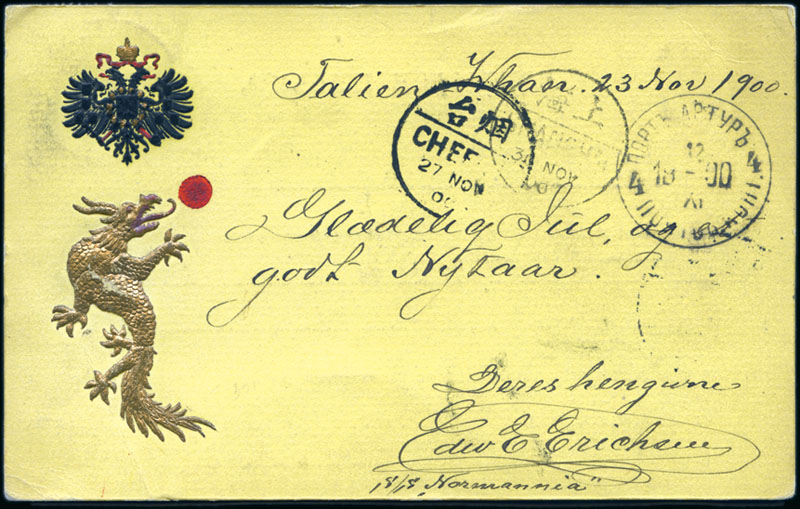 Talien Whan. 23 Nov 1900.
烟台
CHEF
27 NOV
00
上海
30 NOV
ПОРТЪ АРТУРЪ
12
18 - 00
XI
4 4
Glædelig Jul, og
godt Nytaar.
Deres hengivne
Edw E Erichsen
s/s "Normannia"